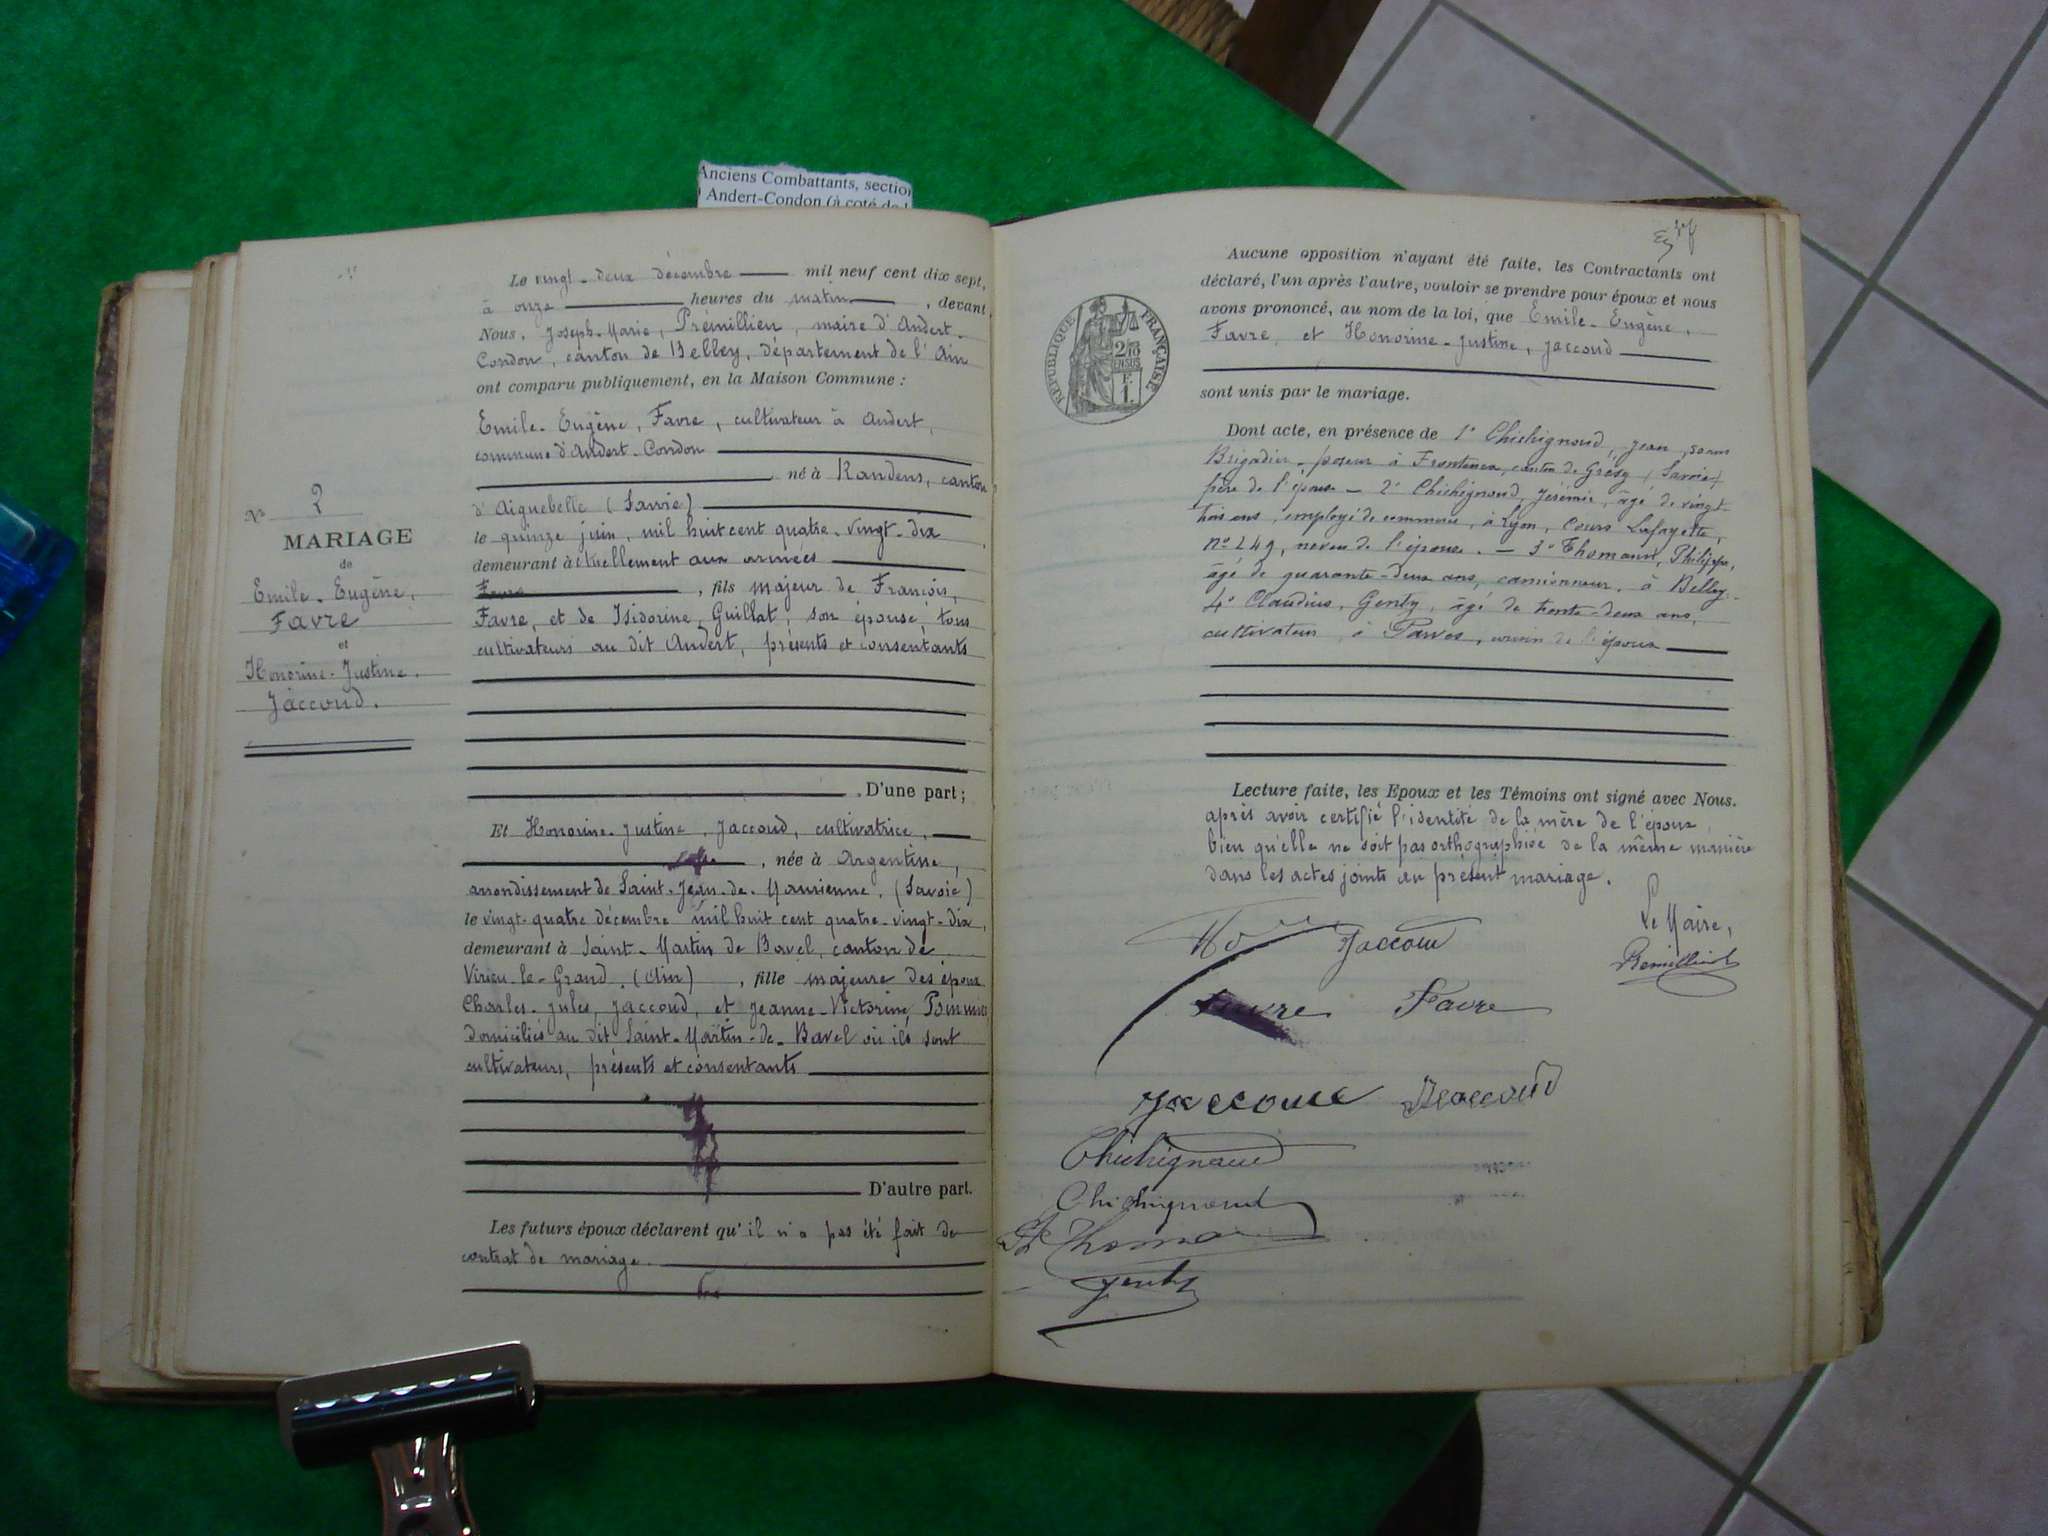 Anciens Combattants, section
Andert-Condon (à coté de
Le vingt-deux décembre mil neuf cent dix sept,
à onze heures du matin, devant
Nous, Joseph-Marie, Prémillieu, maire d'Andert-
Condon, canton de Belley, département de l'Ain
ont comparu publiquement, en la Maison Commune :
Emile-Eugène, Favre, cultivateur à Andert,
commune d'Andert-Condon
né à Randens, canton
d'Aiguebelle (Savoie)
le quinze juin, mil huit cent quatre-vingt-dix
demeurant actuellement aux armées
, fils majeur de François,
Favre, et de Isidorine, Guillat, son épouse, tous
cultivateurs au dit Andert, présents et consentants
D'une part ;
No 2
MARIAGE
de
Emile-Eugène,
Favre
et
Honorine-Justine,
Jaccoud.
Et Honorine-Justine, Jaccoud, cultivatrice,
, née à Argentine,
arrondissement de Saint-Jean-de-Maurienne, (Savoie)
le vingt-quatre décembre mil huit cent quatre-vingt-dix,
demeurant à Saint-Martin de Bavel, canton de
Virieu-le-Grand, (Ain), fille majeure des époux
Charles-Jules, Jaccoud, et Jeanne-Victorine,
domiciliés au dit Saint-Martin-de-Bavel où ils sont
cultivateurs, présents et consentants
D'autre part.
Les futurs époux déclarent qu'il n'a pas été fait de
contrat de mariage.
RÉPUBLIQUE FRANÇAISE
2/10
EN SUS
F.
1.
Aucune opposition n'ayant été faite, les Contractants ont
déclaré, l'un après l'autre, vouloir se prendre pour époux et nous
avons prononcé, au nom de la loi, que Emile-Eugène,
Favre, et Honorine-Justine, Jaccoud
sont unis par le mariage.
Dont acte, en présence de 1° Chichignoud, Jean,
Brigadier-poseur à Frontenex, canton de Grésy (Savoie)
frère de l'épouse — 2° Chichignoud, Jérémie, âgé de vingt-
trois ans, employé de commerce, à Lyon, Cours Lafayette,
n° 249, neveu de l'épouse. — 3° Thomann, Philippe,
âgé de quarante-deux ans, camionneur, à Belley.
4° Claudius, Genty, âgé de trente-deux ans,
cultivateur, à Parves, cousin de l'époux
Lecture faite, les Epoux et les Témoins ont signé avec Nous.
après avoir certifié l'identité de la mère de l'époux,
bien qu'elle ne soit pas orthographiée de la même manière
dans les actes joints au présent mariage.
Le Maire,
Prémillieu
Jaccoud
Favre Favre
Jaccoud Jaccoud
Chichignoud
Chichignoud
Ph Thoman
Genty